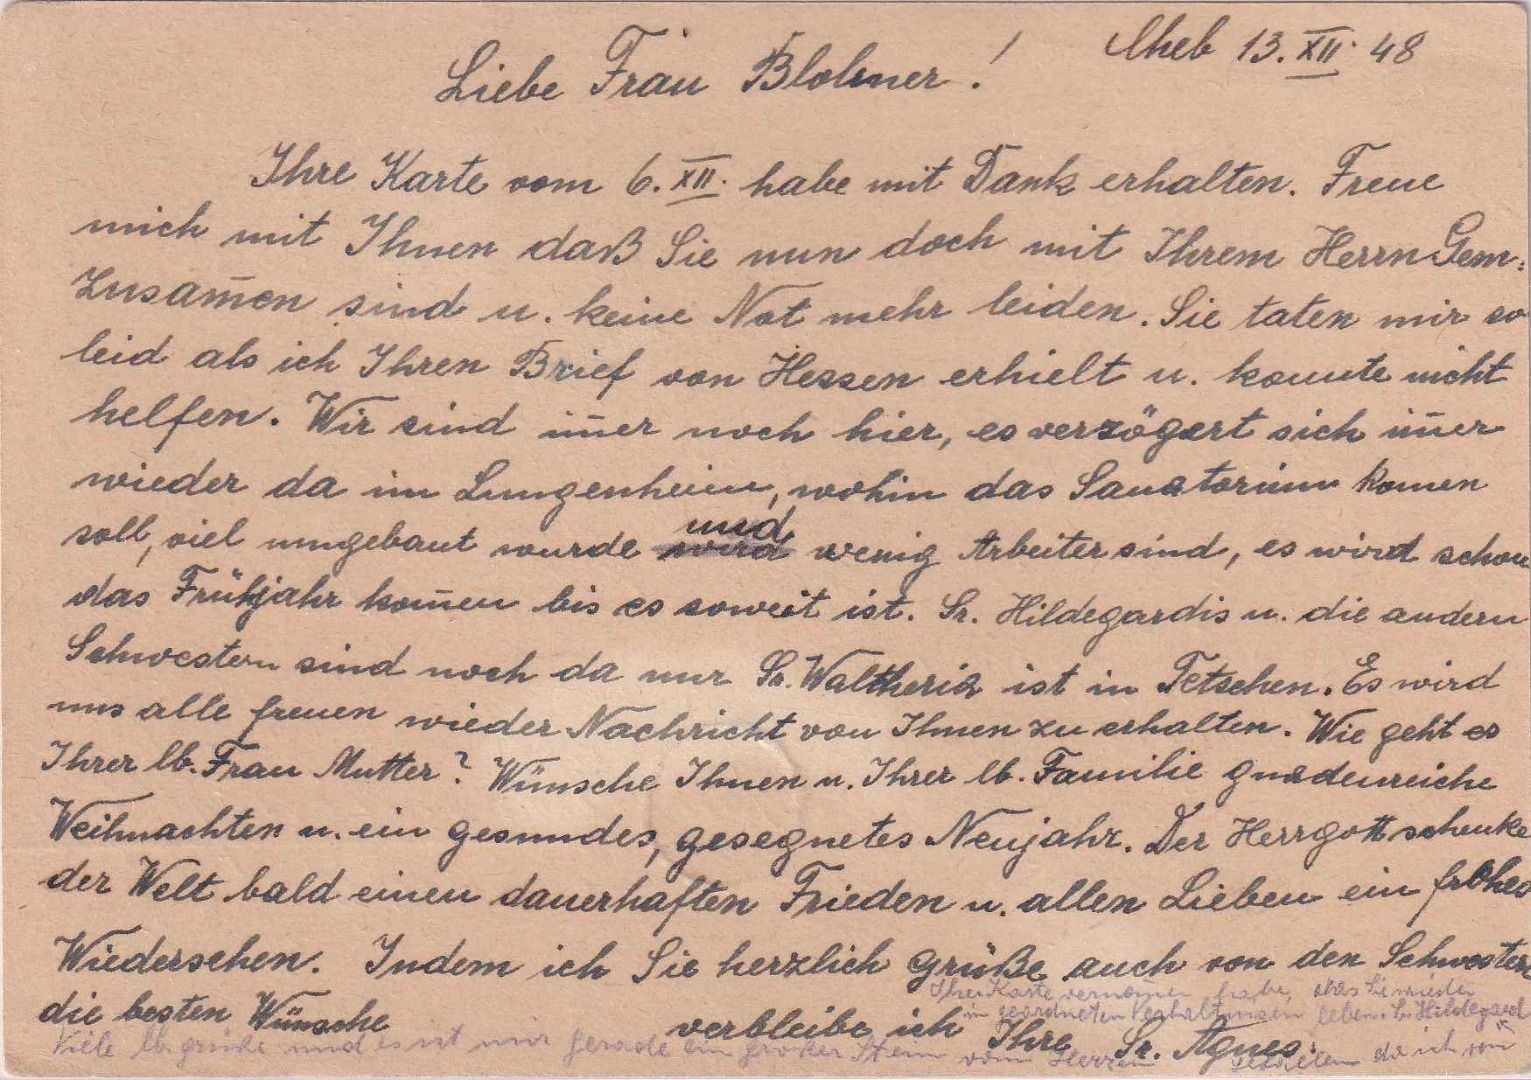 Cheb 13. XII. 48
Liebe Frau Blohner!
Ihre Karte vom 6. XII. habe mit Dank erhalten. Freue
mich mit Ihnen daß Sie nun doch mit Ihrem Herrn Gem:
Zusam̄en sind u. keine Not mehr leiden. Sie taten mir so
leid als ich Ihren Brief von Hessen erhielt u. konnte nicht
helfen. Wir sind im̄er noch hier, es verzögert sich im̄er
wieder da im Lungenheim, wohin das Sanatorium komen
soll, viel umgebaut wurde und wenig Arbeiter sind, es wird schon
das Frühjahr kom̄en bis es soweit ist. Sr. Hildegardis u. die andern
Schwestern sind noch da nur Sr. Waltheria ist in Tetschen. Es wird
uns alle freuen wieder Nachricht von Ihnen zu erhalten. Wie geht es
Ihrer lb. Frau Mutter? Wünsche Ihnen u. Ihrer lb. Familie gnadenreiche
Weihnachten u. ein gesundes, gesegnetes Neujahr. Der Herrgott schenke
der Welt bald einen dauerhaften Frieden u. allen Lieben ein frohes
Wiedersehen. Indem ich Sie herzlich grüße auch von den Schwestern
die besten Wünsche verbleibe ich Ihre Sr. Agnes.
Viele lb. grüße und es ist mir gerade ein großer Stein vom Herzen gefallen da ich von
Ihrer Karte vernom̄en habe, das Sie wieder
in geordneten Verhältnissen leben. Sr. Hildegard